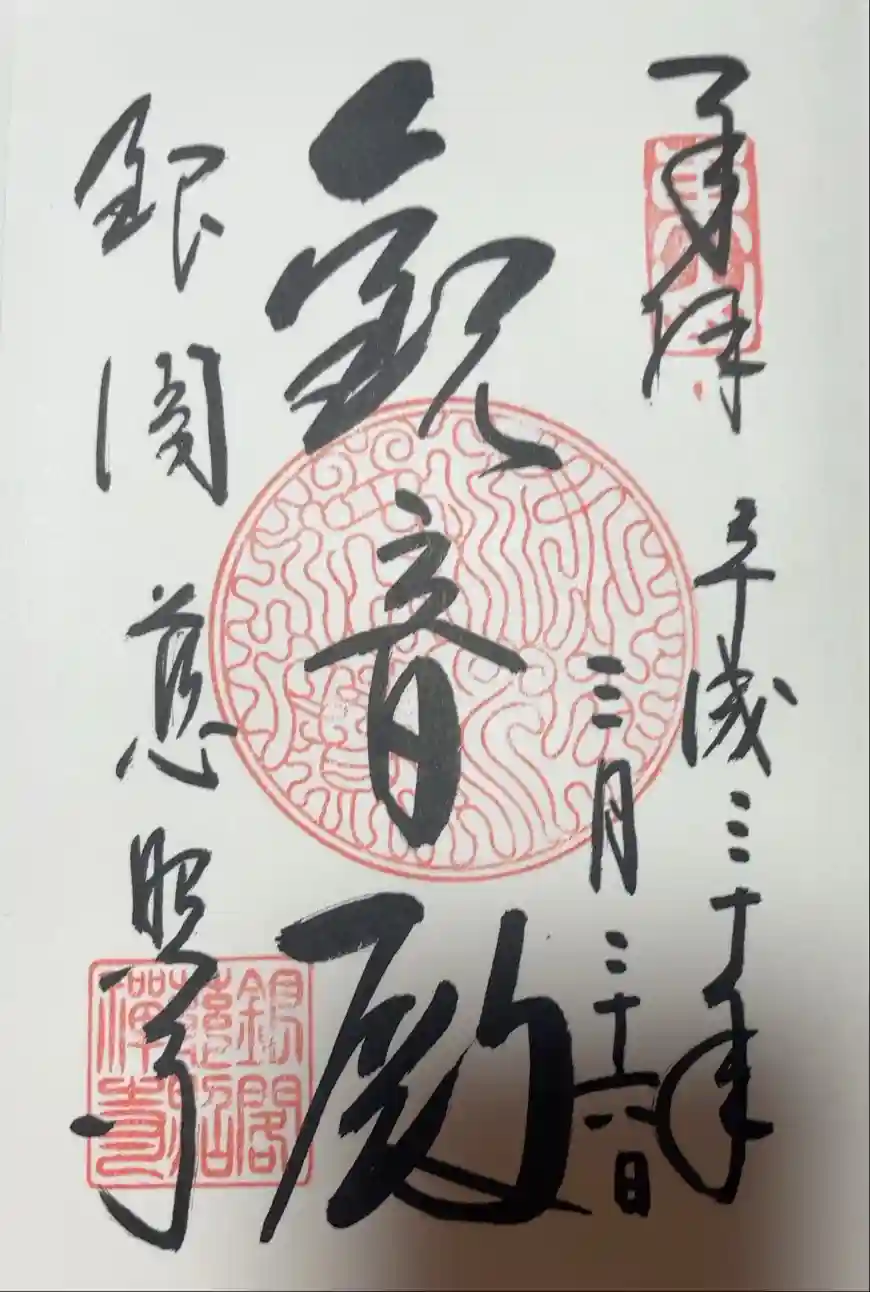 奉拝 平成三十年
三月二十六日
観音殿
銀閣 慈照寺
銀閣
慈照
禪寺